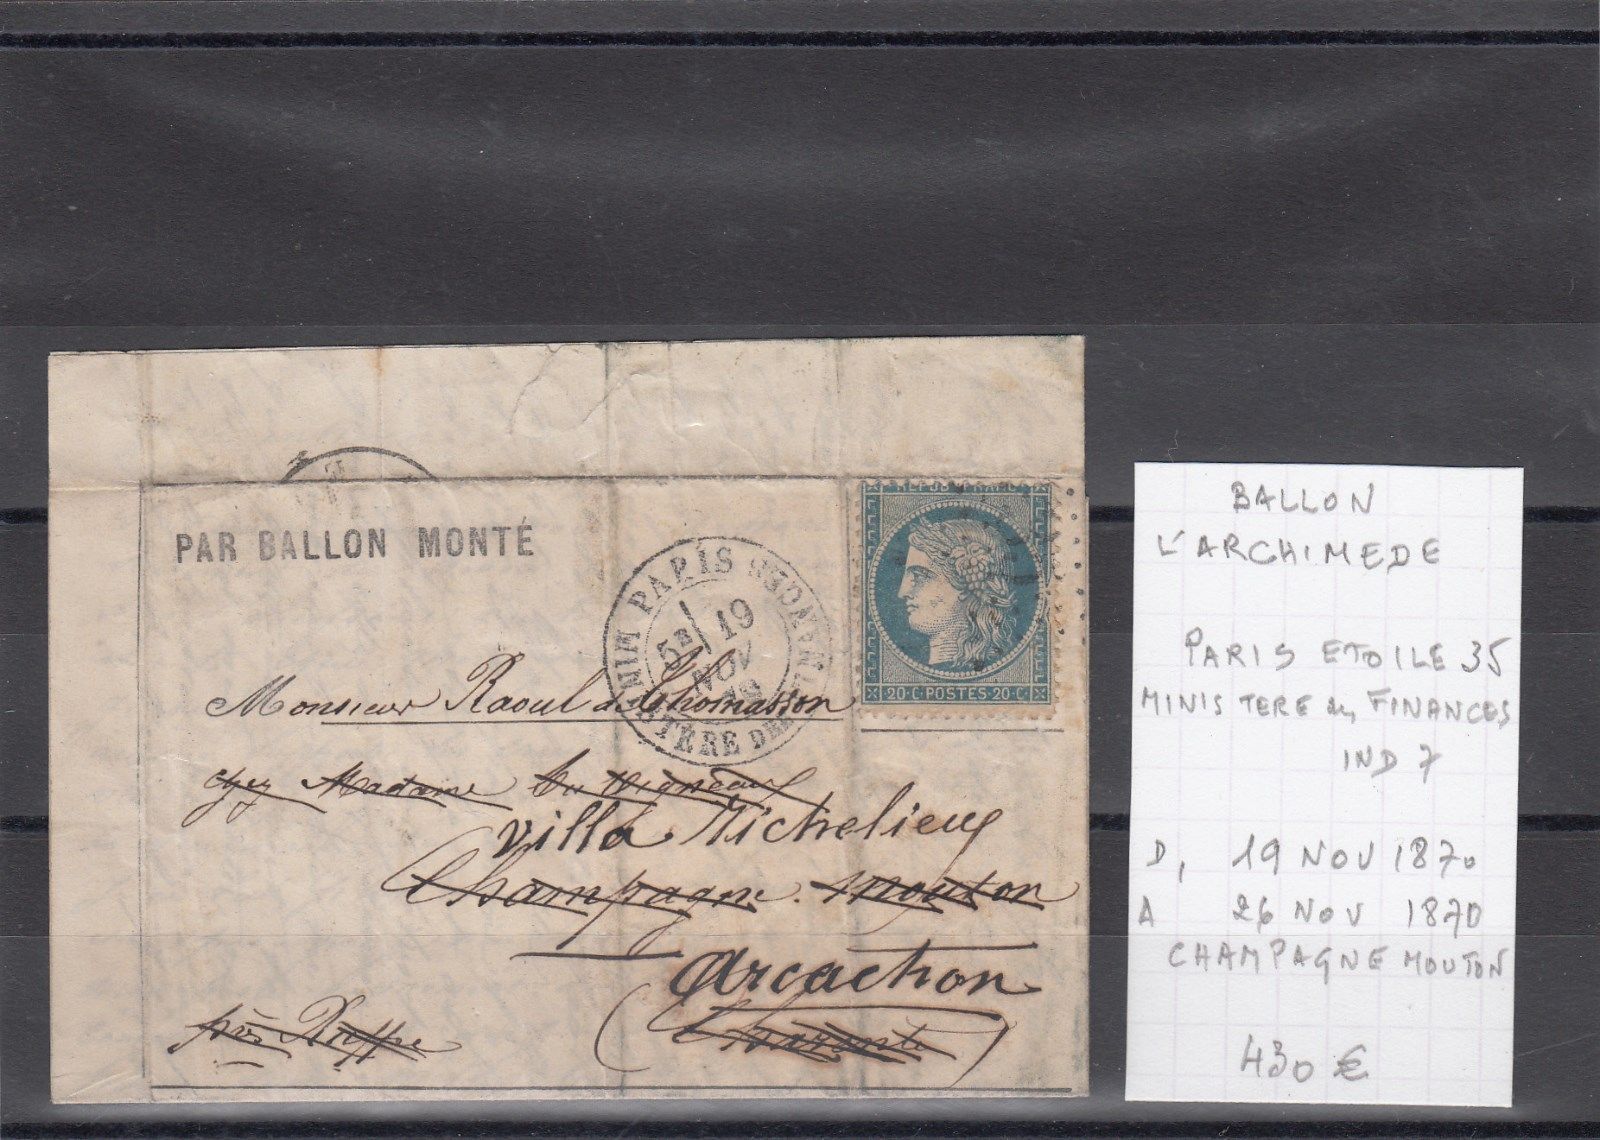 PAR BALLON MONTÉ
PARIS
5ᴱ 19
NOV
MINISTÈRE DES FINANCES
REPUB FRANC
20·C·POSTES·20·C·
Monsieur Raoul de Thomasson
chez Madame
villa Richelieu
Champagne-Mouton
Arcachon
(Charente)
près Ruffec
BALLON
L'ARCHIMEDE
PARIS ETOILE 35
MINISTERE des FINANCES
IND 7
D, 19 NOV 1870
A 26 NOV 1870
CHAMPAGNE MOUTON
430 €